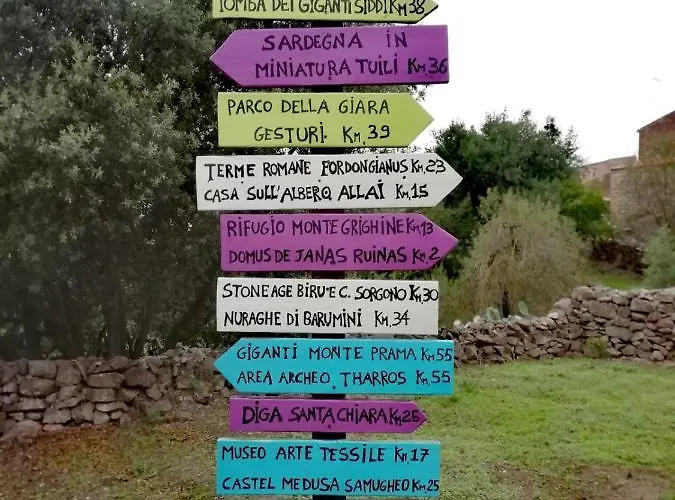 TOMBA DEI GIGANTI SIDDI KM 38
SARDEGNA IN
MINIATURA TUILI KM, 36
PARCO DELLA GIARA
GESTURI KM, 39
TERME ROMANE FORDONGIANUS KM, 23
CASA SULL'ALBERO ALLAI KM, 15
RIFUGIO MONTE GRIGHINE KM, 13
DOMUS DE JANAS RUINAS KM, 2
STONEAGE BIRU'E C. SORGONO KM, 30
NURAGHE DI BARUMINI KM, 34
GIGANTI MONTE PRAMA KM, 55
AREA ARCHEO. THARROS KM, 55
DIGA SANTA CHIARA KM 25
MUSEO ARTE TESSILE KM, 17
CASTEL MEDUSA SAMUGHEO KM, 25